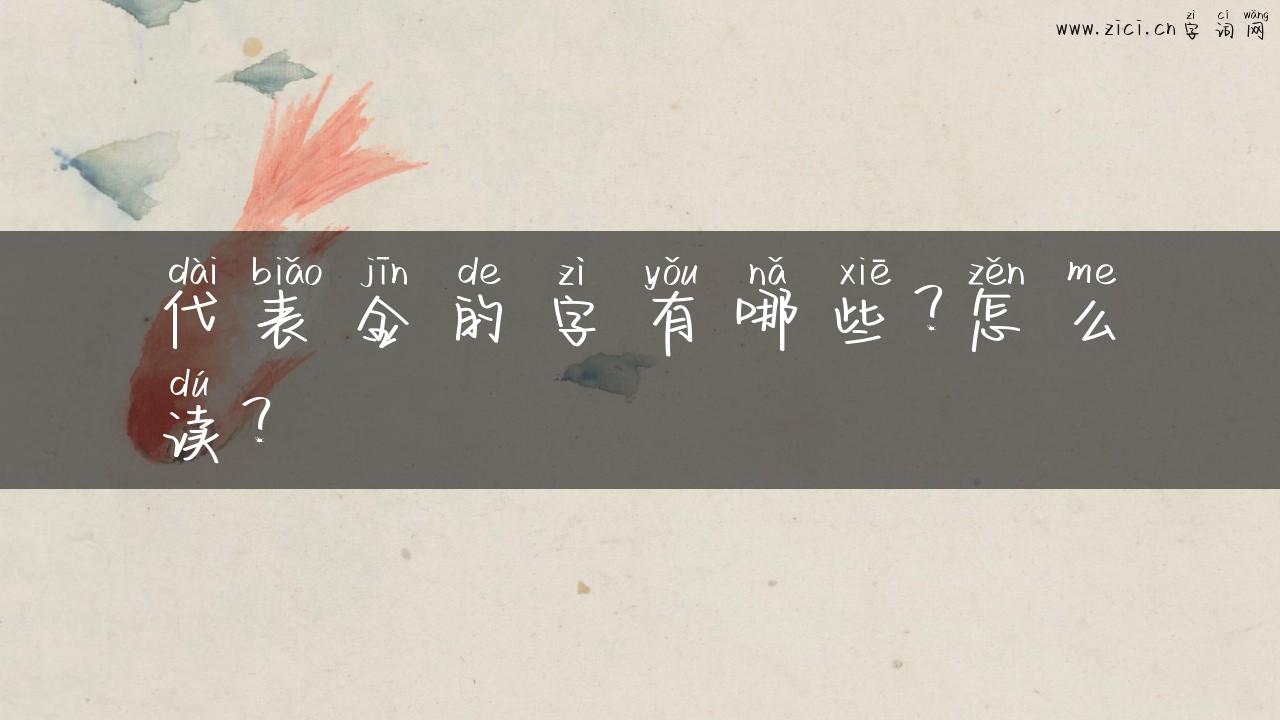 zì cí wǎng
www.zici.cn字词网
dài biǎo jīn de zì yǒu nǎ xiē zěn me
代表金的字有哪些？怎么
dú
读？